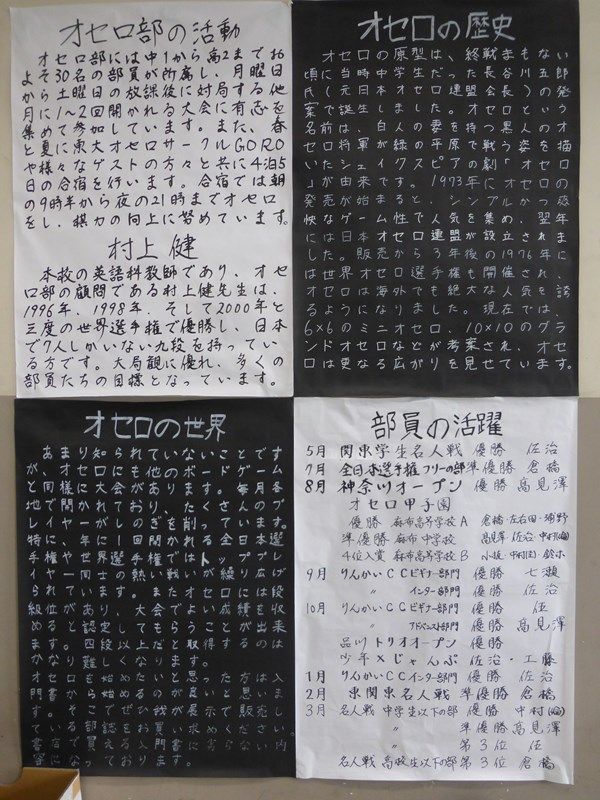 オセロ部の活動
オセロ部には中1から高2までお
よそ30名の部員が所属し、月曜日
から土曜日の放課後に対局する他
月に1〜2回開かれる大会に有志を
集めて参加しています。また、春
と夏に東大オセロサークルGORO
や様々なゲストの方々と共に4泊5
日の合宿を行います。合宿では朝
の9時半から夜の21時までオセロ
をし、棋力の向上に努めています。
村上 健
本校の英語科教師であり、オセ
ロ部の顧問である村上健先生は、
1996年、1998年、そして2000年と
三度の世界選手権で優勝し、日本
で7人しかいない九段を持ってい
る方です。大局観に優れ、多くの
部員たちの目標となっています。
オセロの歴史
オセロの原型は、終戦まもない
頃に当時中学生だった長谷川五郎
氏(元日本オセロ連盟会長)の発
案で誕生しました。オセロという
名前は、白人の妻を持つ黒人のオ
セロ将軍が緑の平原で戦う姿を描
いたシェイクスピアの劇「オセロ
」が由来です。1973年にオセロの
発売が始まると、シンプルかつ爽
快なゲーム性で人気を集め、翌年
には日本オセロ連盟が設立されま
した。販売から3年後の1976年に
は世界オセロ選手権も開催され
オセロは海外でも絶大な人気を誇
るようになりました。現在では、
6×6のミニオセロ、10×10のグラ
ンドオセロなどが考案され、オセ
ロは更なる広がりを見せています。
オセロの世界
あまり知られていないことです
が、オセロにも他のボードゲーム
と同様に大会があります。毎月各
地で開かれており、たくさんのプ
レイヤーがしのぎを削っています。
特に、年に1回開かれる全日本選
手権や世界選手権ではトッププレ
イヤー同士の熱い戦いが繰り広げ
られています。またオセロには段
級位があり、大会でよい成績を収
めると認定してもらうことが出来
ます。四段以上だと取得するのは
かなり難しくなります。
オセロを始めたいと思った方は入
門書から始めるのが良いと思いま
す。そこでぜひ我が展示で販売し
ている部誌をお買い求めください
部員の活躍
5月 関東学生名人戦 優勝 佐治
7月 全日本選手権フリーの部準優勝 倉橋
8月 神奈川オープン 優勝 高見澤
オセロ甲子園
優勝 麻布高等学校A 倉橋・左右田・浦野
準優勝 麻布中学校 高見澤・佐治・中村(倫)
4位入賞 麻布高等学校B 小坂・中村(圭)・鈴木
9月 りんかいCCビギナー部門 優勝 七瀬
〃 インター部門 優勝 佐治
10月 りんかいCCビギナー部門 優勝 伍
〃 アドバンスト部門 優勝 高見澤
品川トリオオープン 優勝
少年×じゃんぷ 佐治・工藤
1月 りんかいCCインター部門 優勝 佐治
2月 東関東名人戦 準優勝 倉橋
3月 名人戦 中学生以下の部 優勝 中村(倫)
〃 準優勝 高見澤
〃 第3位 伍
名人戦 高校生以下の部 第3位 倉橋